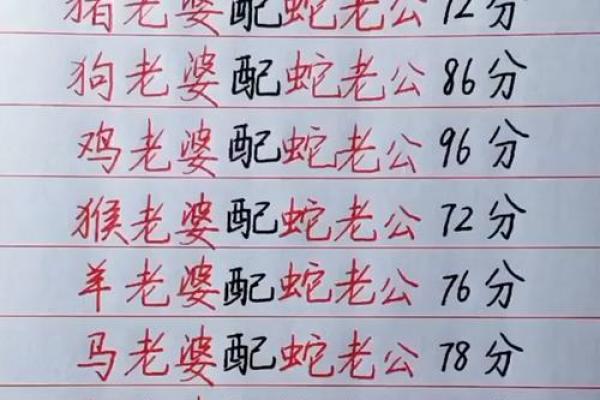 猪老婆配蛇老公72分
狗老婆配蛇老公86分
鸡老婆配蛇老公96分
猴老婆配蛇老公72分
羊老婆配蛇老公76分
马老婆配蛇老公78分